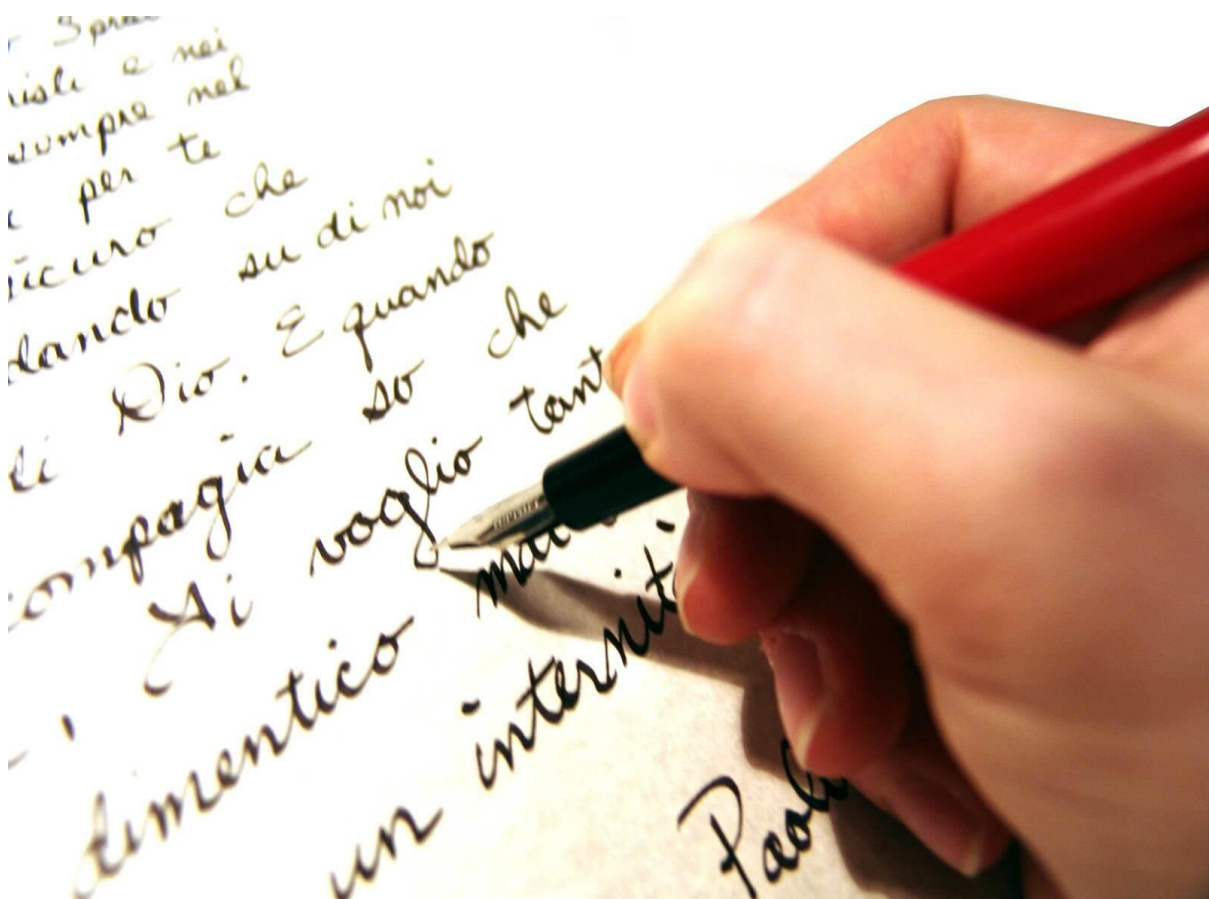 e nei
sempre nel
per te
sicuro che
dando su di noi
di Dio. E quando
compagia so che
Ti voglio tant
dimentico
un internit
Paol